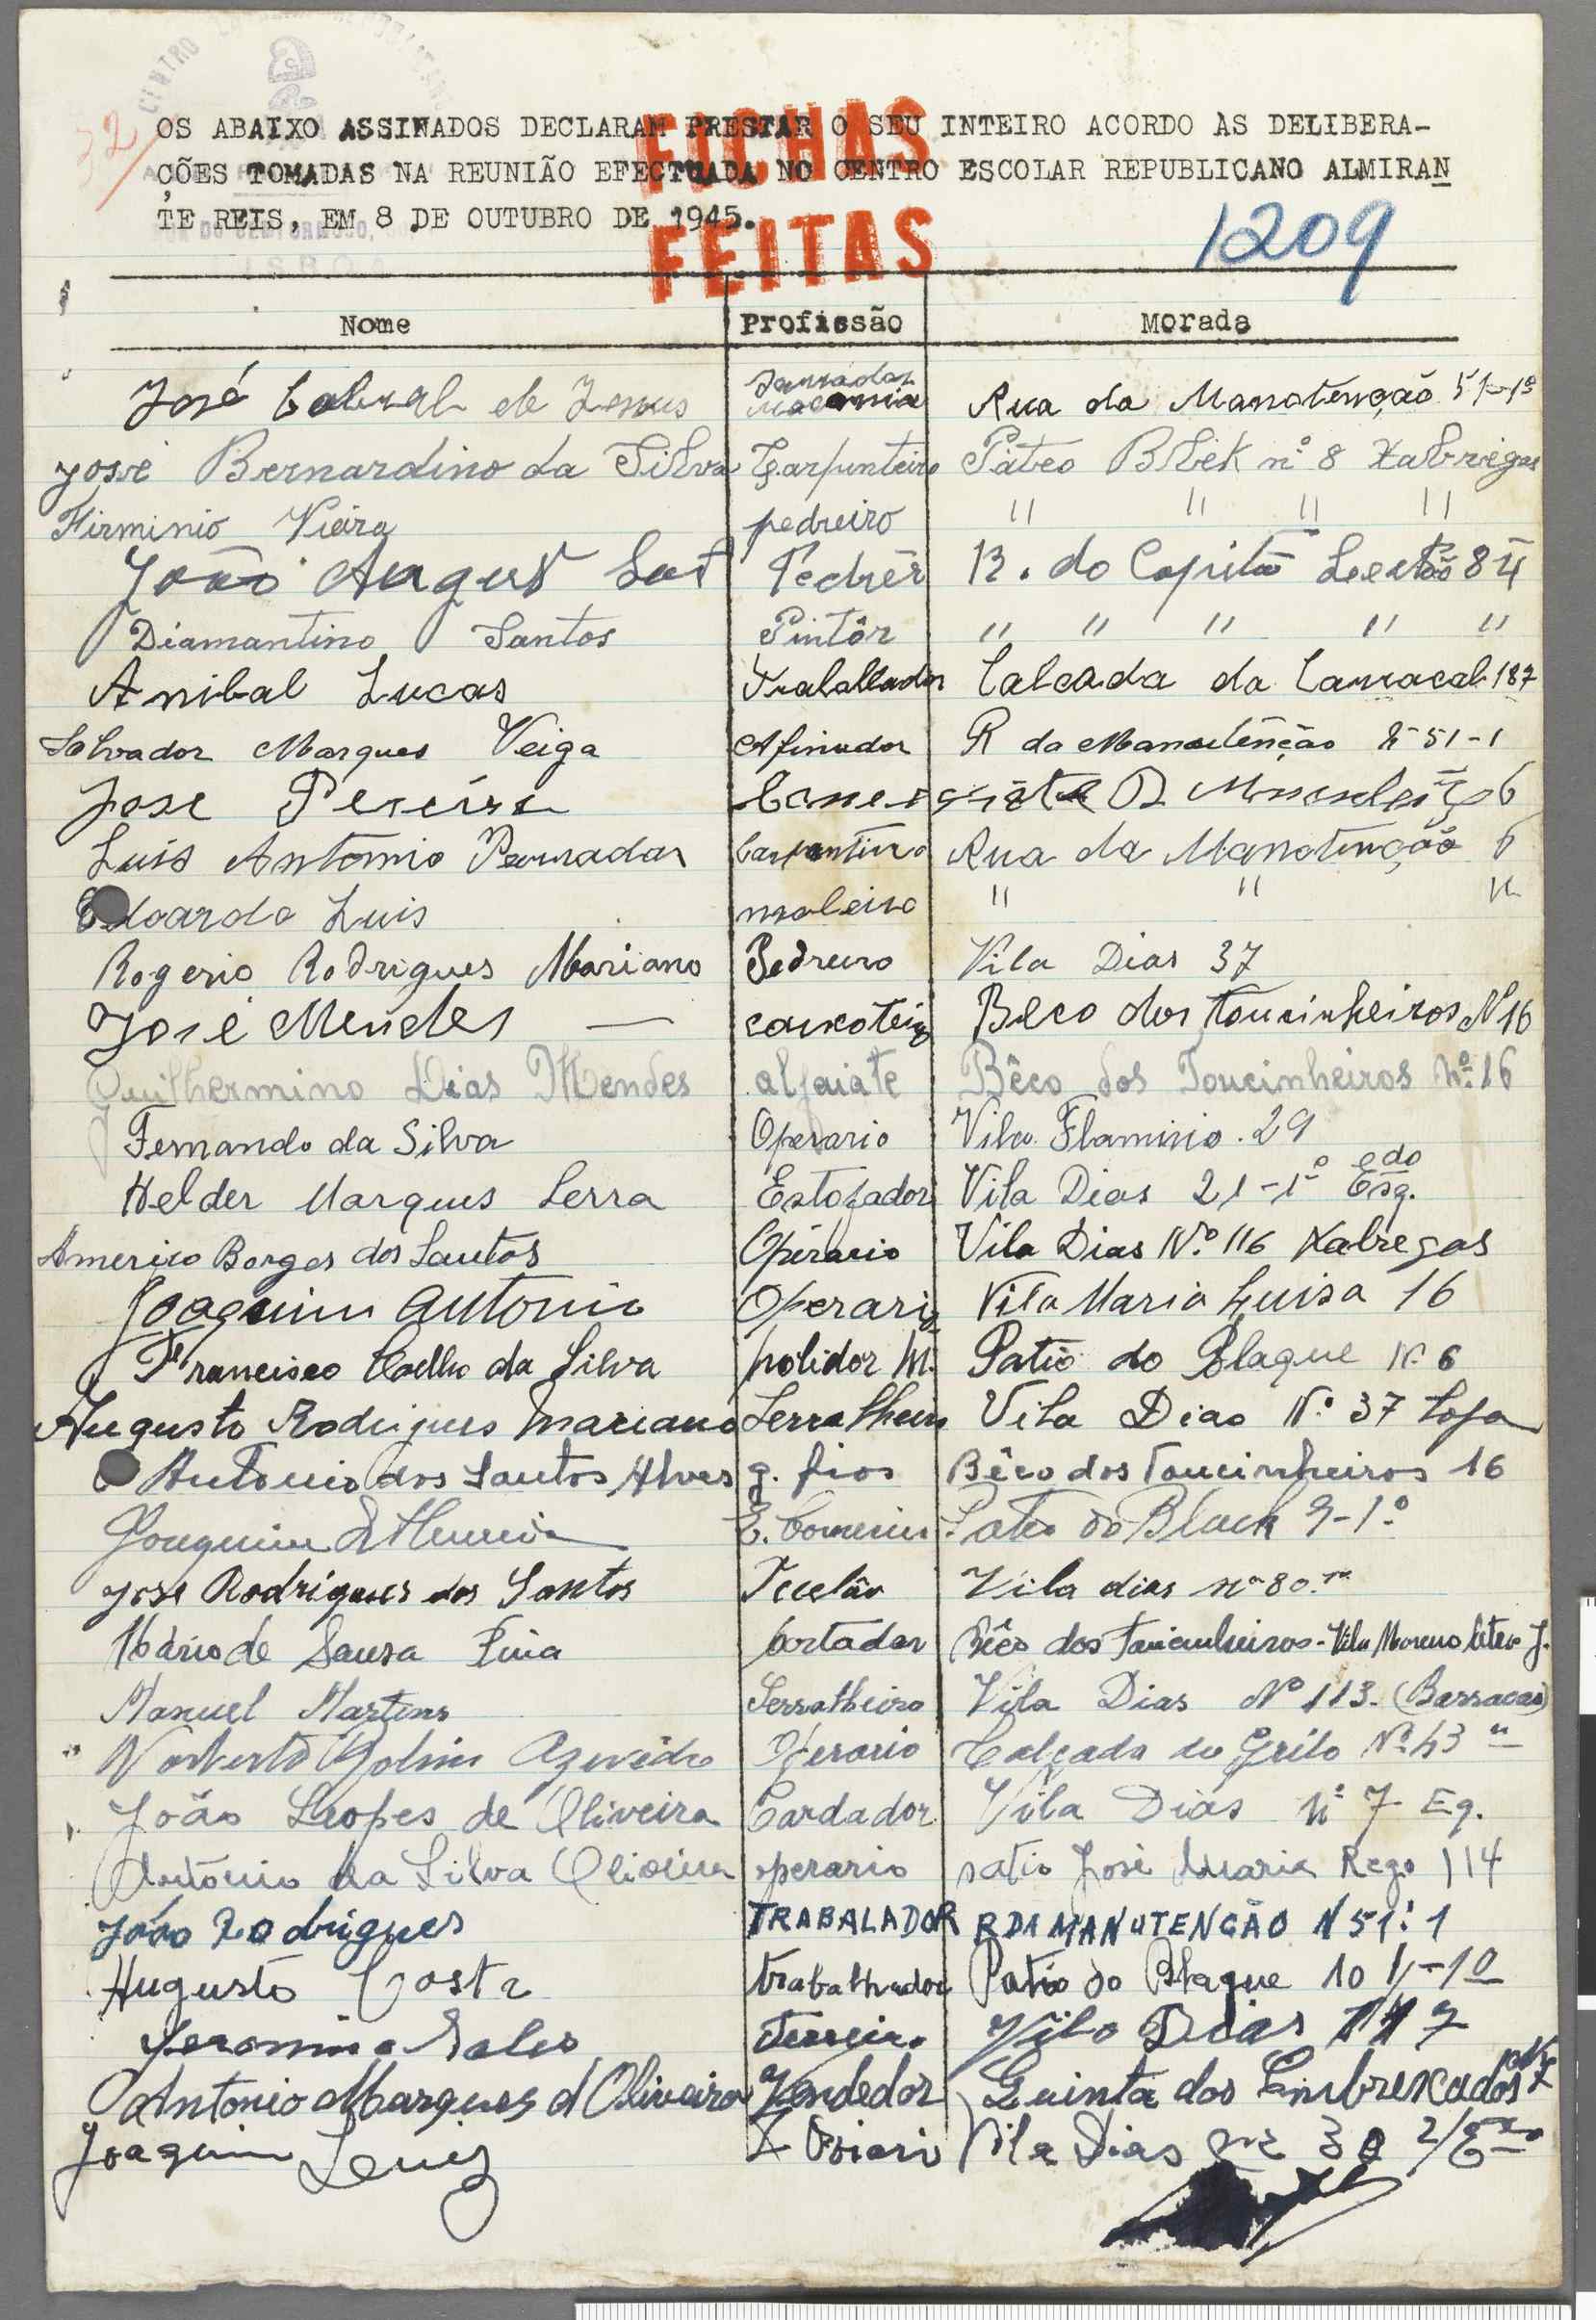 CENTRO
32
FICHAS
FEITAS
OS ABAIXO ASSINADOS DECLARAM PRESTAR O SEU INTEIRO ACORDO AS DELIBERA-
ÇÕES TOMADAS NA REUNIÃO EFECTUADA NO CENTRO ESCOLAR REPUBLICANO ALMIRAN
TE REIS, EM 8 DE OUTUBRO DE 1945.
LISBOA
1209
Nome Profissão Morada
José Cabral de Jesus Rua da Manotenção 51-1º
José Bernardino da Silva Carpinteiro Páteo Blek nº 8 Xabregas
Firminio Vieira pedreiro " " " "
João August Pedrêr R. do Capitão 84
Diamantino Santos Pintôr " " " " "
Anibal Lucas Calcada da 187
Salvador Marques Veiga Afinador R da Manutênção Nº 51-1
Jose Pereira 6
Luis Antonio Carpintiro Rua da Manotenção 6
Edoardo Luis " " "
Rogerio Rodrigues Mariano Pedreiro Vila Dias 37
José Mendes — caixoteiro Beco dos Toucinheiros Nº 16
Guilhermino Dias Mendes alfaiate Bêco dos Toucinheiros Nº 16
Fernando da Silva Operario Vila Flaminio. 29
Helder Marques Serra Estofador Vila Dias 21-1º Esq. edo
Americo Borges dos Santos Operario Vila Dias Nº 116 Xabregas
Joaquim Antonio Operario Vila Maria Luisa 16
Francisco Coelho da Silva polidor M. Patio do Blaque Nº 6
Augusto Rodrigues Mariano Serralheiro Vila Dias Nº 37 loja
Antonio dos Santos Alves g. fios Bêco dos Toucinheiros 16
Joaquim E. Comercio Pateo do Black 9-1º
Jose Rodrigues dos Santos Tecelão Vila dias nº 80
Mário de Sousa Pina Cortador Bêco dos Toucinheiros - Vila Moreno letra J.
Manuel Martins Serralheiro Vila Dias Nº 113. (Barracas)
Norberto Azevêdo Operario Calçada do Grilo Nº 43
João Lopes de Oliveira Cardador Vila Dias nº 7 Eq.
Antonio da Silva Oliveira operario patio José Maria Rego 114
João Rodrigues TRABALADOR R DA MANUTENCÃO N 51. 1
Augusto Costa trabalhador Patio do Blaque 10 1/-1º
Jeronimo Sales Vila Dias 117
Antonio Marques d Oliveira Vendedor Quinta dos Embrexados
Joaquim Luiz Vila Dias nº 30